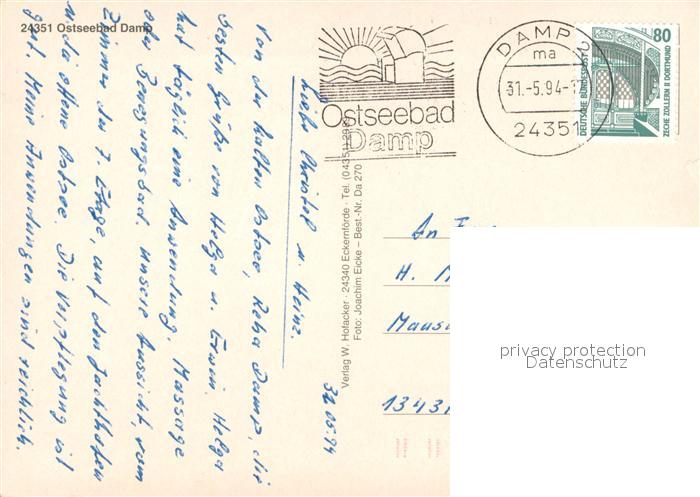 24351 Ostseebad Damp
Liebe Christel u. Heinz.
Von der kalten Ostsee, Reha Damp, die
besten Grüße von Helga u. Erwin. Helga
hat täglich eine Anwendung. Massage
oder Bewegungsbad. Unsere Aussicht, vom
Zimmer der 7 Etage, auf den Jachthafen
u. die offene Ostsee. Die Verpflegung ist
gut. Meine Anwendungen sind reichlich.
31.05.94
Verlag W. Hofacker · 24340 Eckernförde · Tel. (04351)
Foto: Joachim Eicke – Best.-Nr. Da 270
Ostseebad
Damp
DAMP
ma
31.-5.94-
24351
80
DEUTSCHE BUNDESPOST
ZECHE ZOLLERN II DORTMUND
An
H. M
Maus
1343
privacy protection
Datenschutz